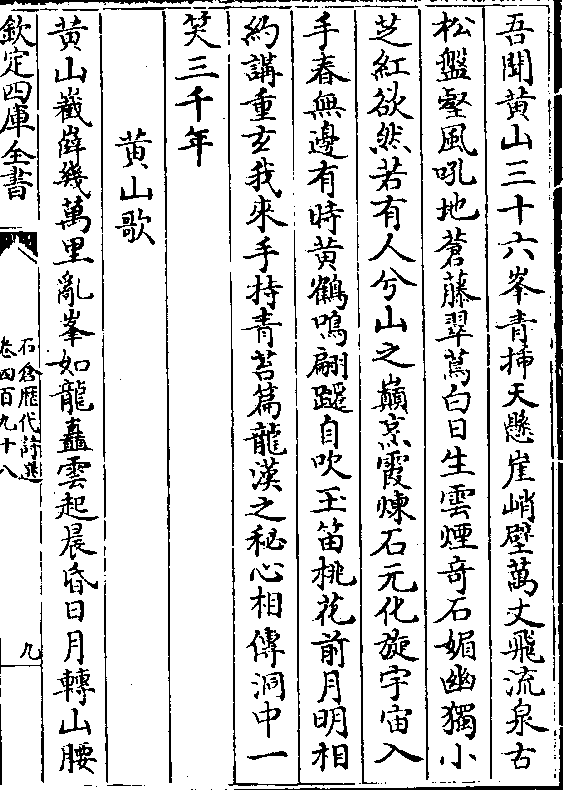 吾聞黄山三十六峯青揷天懸崖峭壁萬丈飛流泉古
松盤壑風吼地蒼藤翠蔦白日生雲煙竒石媚幽獨小
芝紅欲然若有人兮山之巔烹霞煉石元化旋宇宙入
手春無邊有時黄鶴鳴翩躚自吹玉笛桃花前月明相
約講重玄我來手持青苔篇龍漢之秘心相傳洞中一
笑三千年
黄山歌
黄山嶻嶭幾萬里亂峯如龍矗雲起晨昏日月轉山腰
欽定四庫全書
石倉歴代詩選
卷四百九十八
九